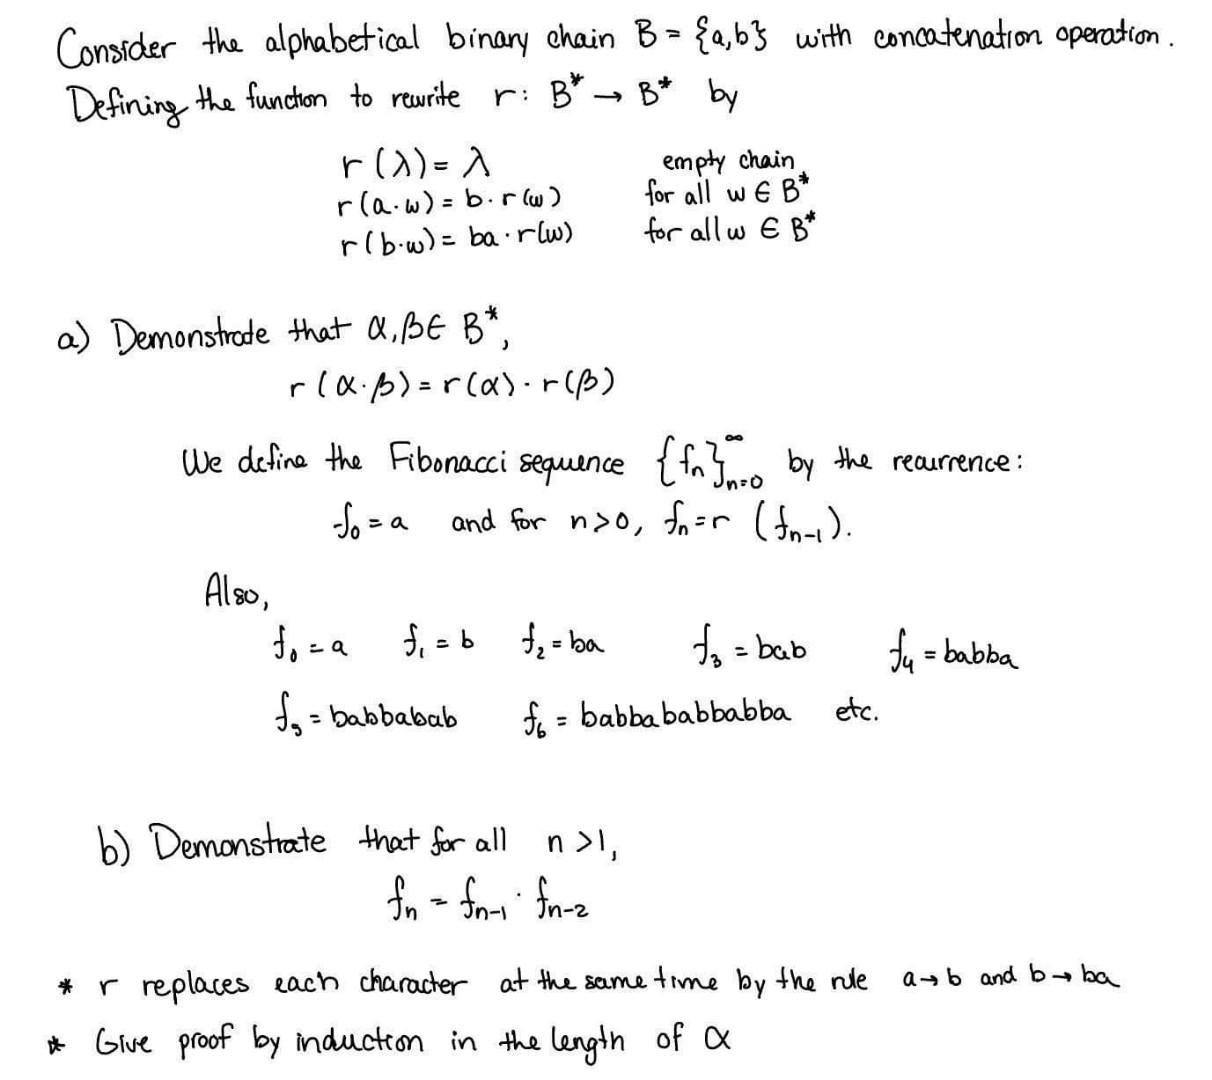 Consider the alphabetical binary chain B = {a,b} with concatenation operation.
Defining the function to rewrite r: B* → B* by
r(λ) = λ empty chain
r(a·w) = b·r(w) for all w ∈ B*
r(b·w) = ba·r(w) for all w ∈ B*
a) Demonstrate that α,β ∈ B*,
r(α·β) = r(α)·r(β)
We define the Fibonacci sequence {fₙ}^∞ₙ₌₀ by the recurrence:
f₀ = a and for n>0, fₙ = r (fₙ₋₁).
Also,
f₀ = a f₁ = b f₂ = ba f₃ = bab f₄ = babba
f₅ = babbabab f₆ = babbababbabba etc.
b) Demonstrate that for all n >1,
fₙ = fₙ₋₁ · fₙ₋₂
* r replaces each character at the same time by the rule a→b and b→ba
* Give proof by induction in the length of α